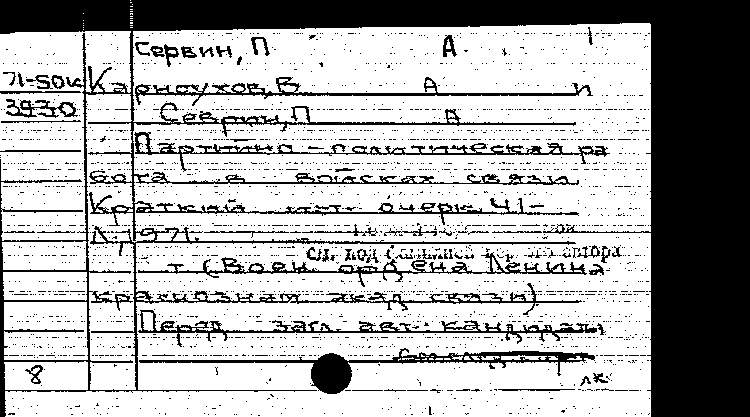 Сервин, П А
71-50к Карноухов, В А и
3930 Севрин, П А
Партийно-политическая ра
бота в войсках связи
Краткий ист. очерк. Ч1-
Л., 1971.
см. под фамилией автора
т (Воен. ордена Ленина
краснознам акад связи)
Перед загл. авт.: кандидаты
8
лк